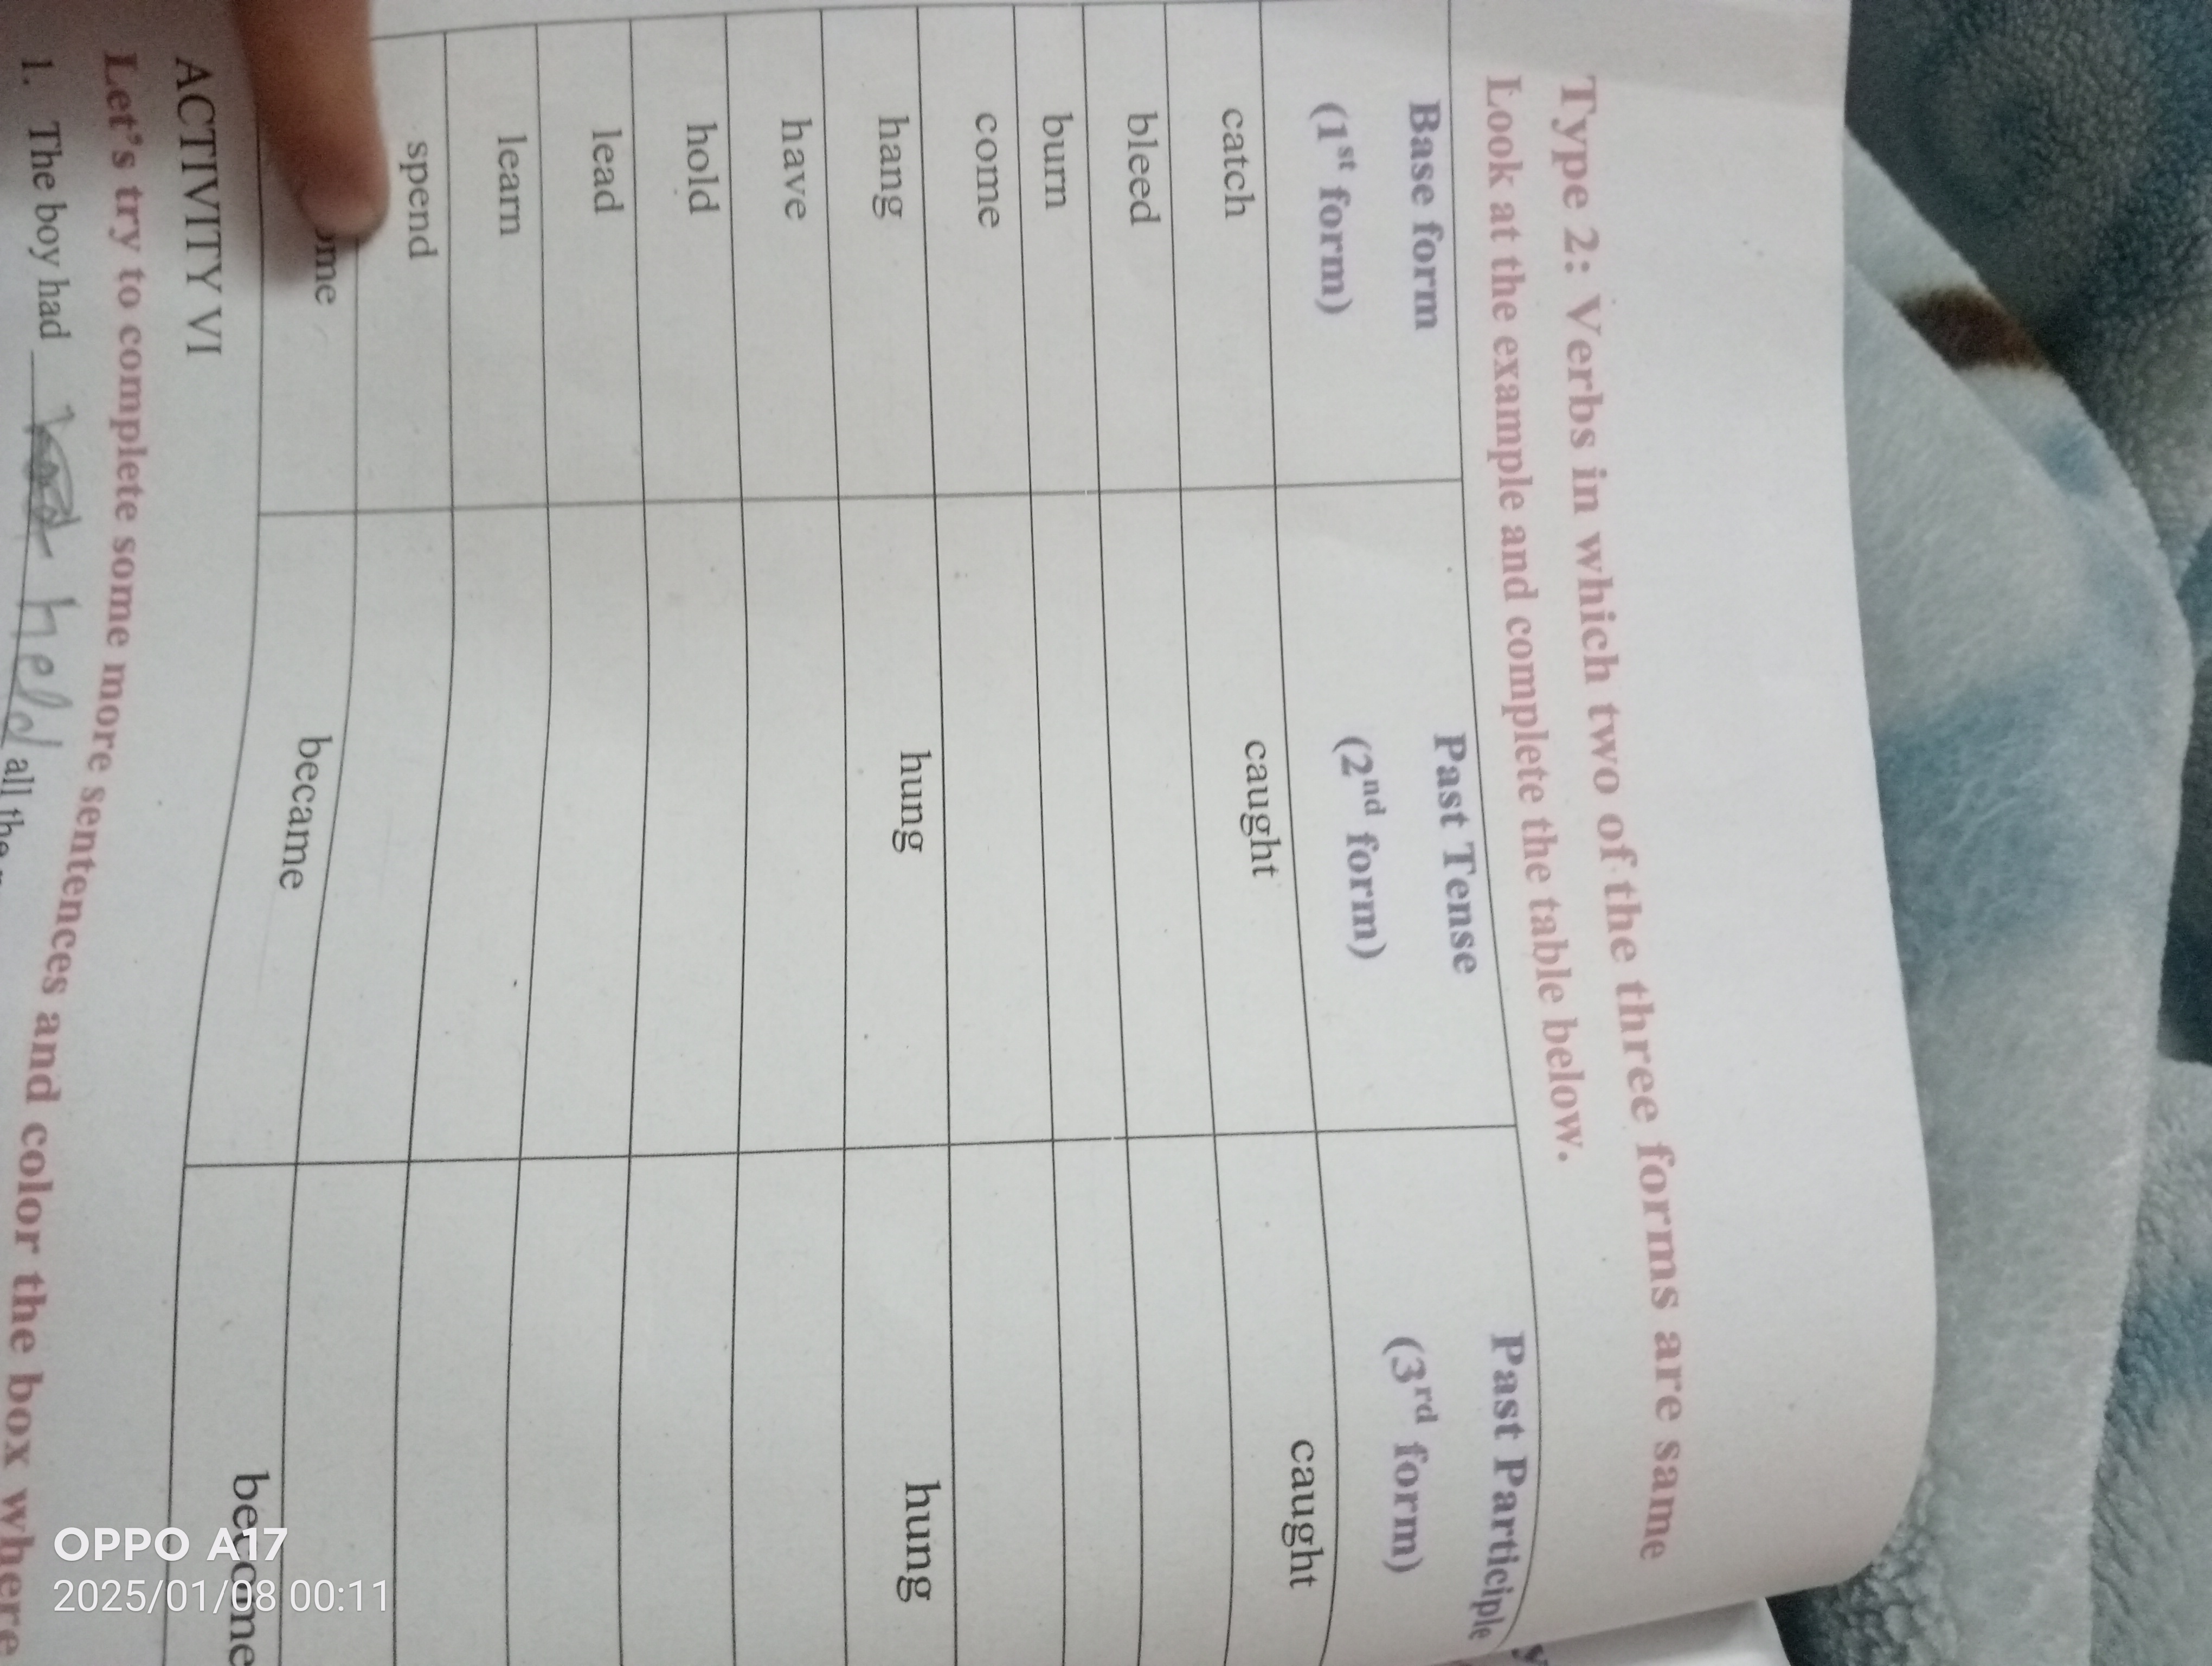 Type 2: Verbs in which two of the three forms are same
Look at the example and complete the table below.
Base form Past Tense Past Participle
(1st form) (2nd form) (3rd form)
catch caught caught
bleed
burn
come
hang hung hung
have
hold
lead
learn
spend
became become
ACTIVITY VI
Let's try to complete some more sentences and color the box where
1. The boy had held all the
OPPO A17
2025/01/08 00:11